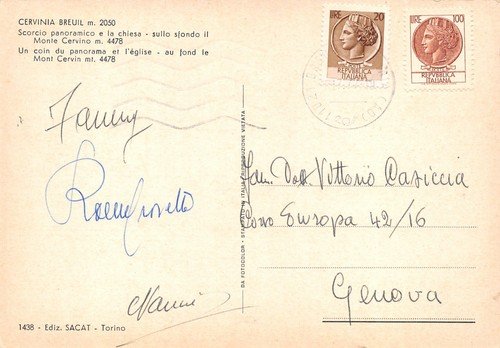 CERVINIA BREUIL m. 2050
Scorcio panoramico e la chiesa - sullo sfondo il
Monte Cervino m. 4478
Un coin du panorama et l'église - au fond le
Mont Cervin mt. 4478
LIRE 20
REPVBBLICA
ITALIANA
LIRE 100
REPVBBLICA
ITALIANA
Fanny
Nanni
DA FOTOCOLOR - STAMPATO IN ITALIA RIPRODUZIONE VIETATA
Fam. Dott. Vittorio Casiccia
Corso Europa 42/16
Genova
1438 - Ediz. SACAT - Torino